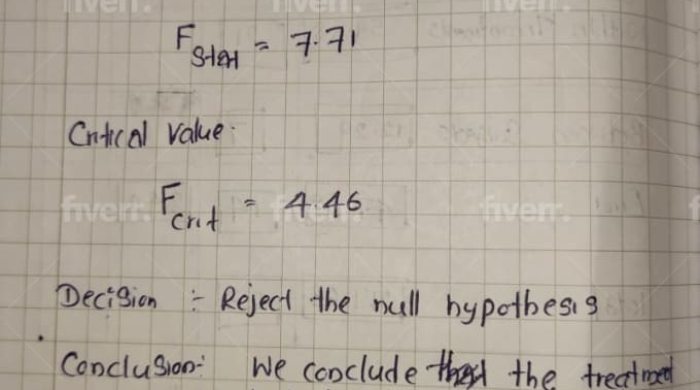 F stat = 7.71
Critical value.
F crit = 4.46
Decision :- Reject the null hypothesis
Conclusion:- We conclude that the treatment
fiverr.
fiverr.
fiverr.